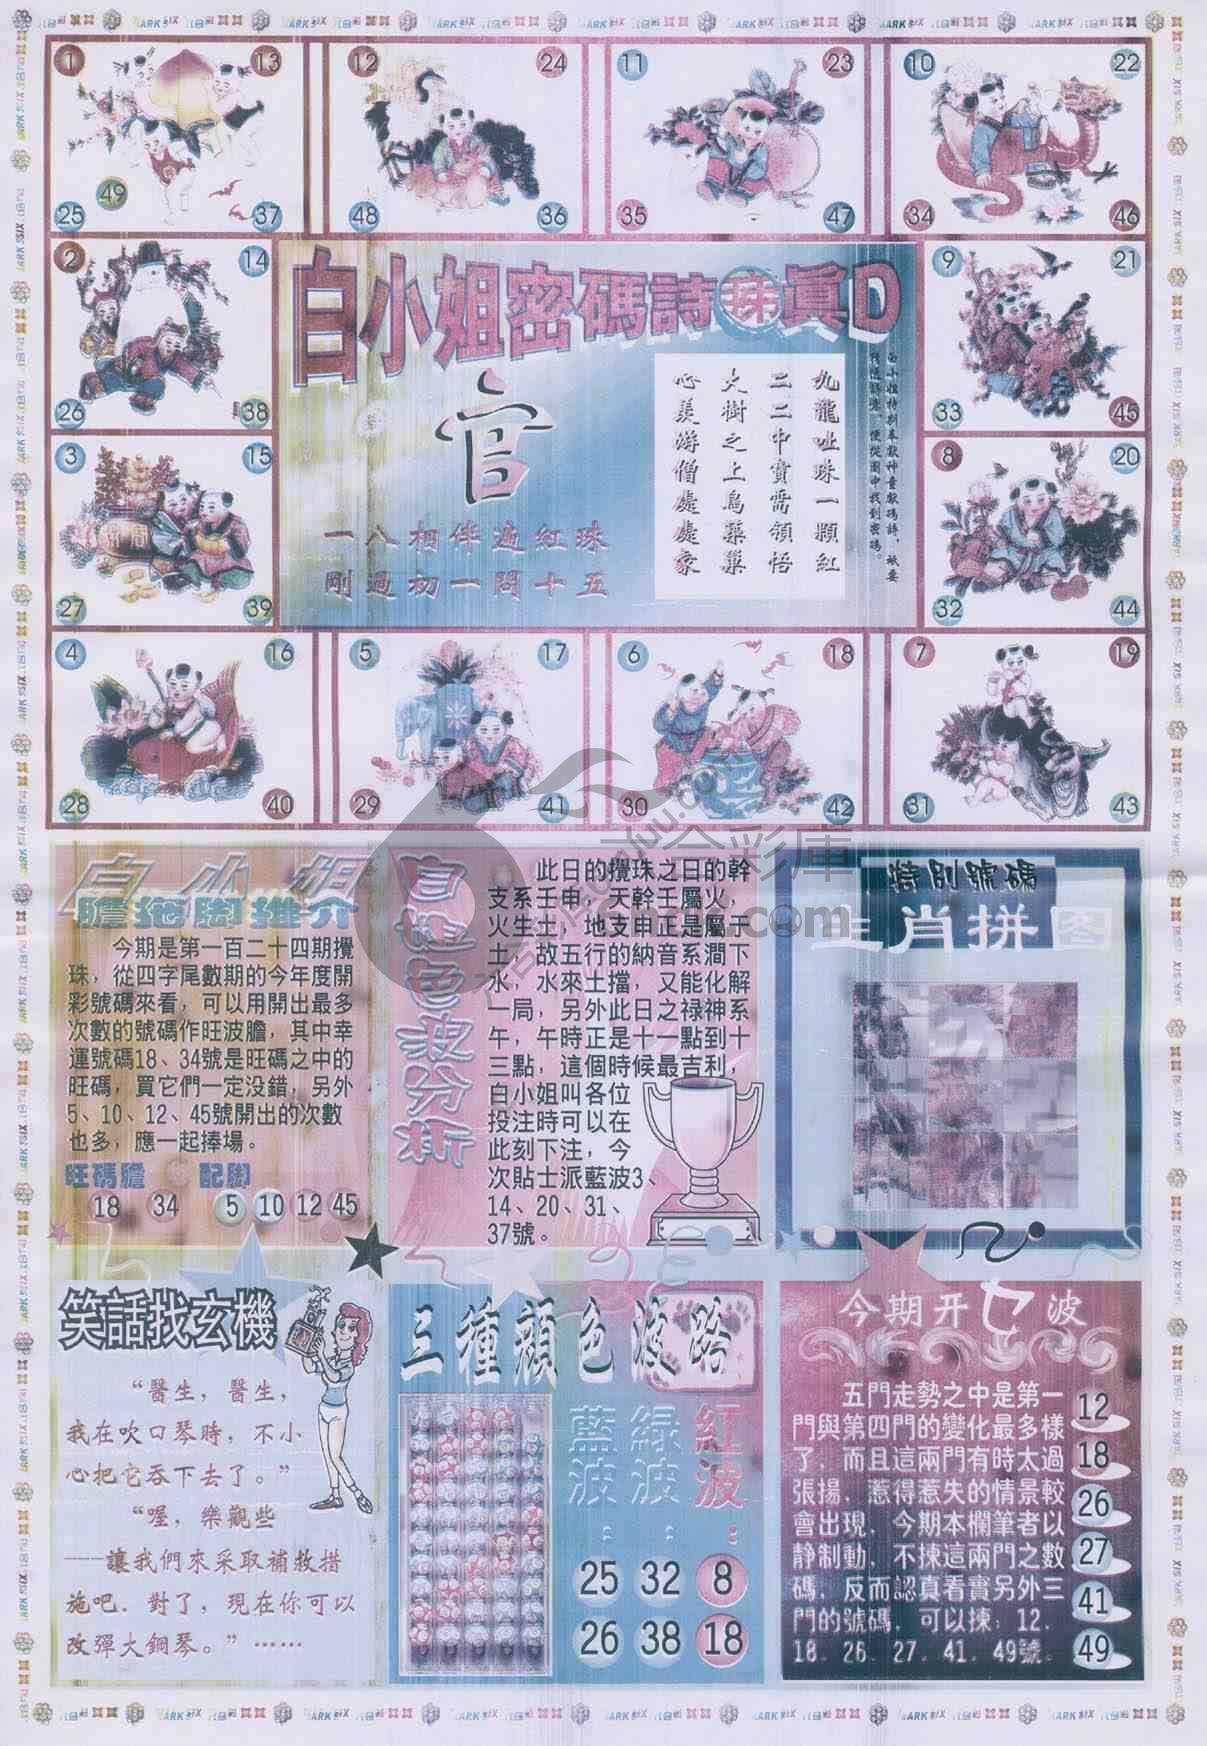 1 13 25 49 37
12 24 48 36
11 23 35 47
10 22 34 46
2 14 26 38
白小姐密碼詩 真D
9 21 33 45
官
一八相伴追紅珠
剛過初一問十五
九龍吐珠一顆紅
二二中寶需領悟
大樹之上鳥築巢
心美游僧處處家
3 15 27 39
8 20 32 44
4 16 28 40
5 17 29 41
6 18 30 42
7 19 31 43
六合彩庫
白小姐
膽拖脚推介
今期是第一百二十四期攪
珠，從四字尾數期的今年度開
彩號碼來看，可以用開出最多
次數的號碼作旺波膽，其中幸
運號碼18、34號是旺碼之中的
旺碼，買它們一定没錯，另外
5、10、12、45號開出的次數
也多，應一起捧場。
旺碼膽 配脚
18 34 5 10 12 45
白姐色波分析
此日的攪珠之日的幹
支系壬申，天幹壬屬火，
火生土，地支申正是屬于
土，故五行的納音系澗下
水，水來土擋，又能化解
一局，另外此日之禄神系
午，午時正是十一點到十
三點，這個時候最吉利，
白小姐叫各位
投注時可以在
此刻下注，今
次貼士派藍波3、
14、20、31、
37號。
特别號碼
生肖拼图
笑話找玄機
“醫生，醫生，
我在吹口琴時，不小
心把它吞下去了。”
“喔，樂觀些
——讓我們來采取補救措
施吧．對了，現在你可以
改彈大鋼琴。”……
三種顔色波路
藍波：25 26
緑波：32 38
紅波：8 18
今期开七波
五門走勢之中是第一
門與第四門的變化最多樣
了，而且這兩門有時太過
張揚，惹得惹失的情景較
會出現．今期本欄筆者以
静制動，不揀這兩門之數
碼，反而認真看實另外三
門的號碼，可以揀：12．
18．26．27．41．49號．
12
18
26
27
41
49